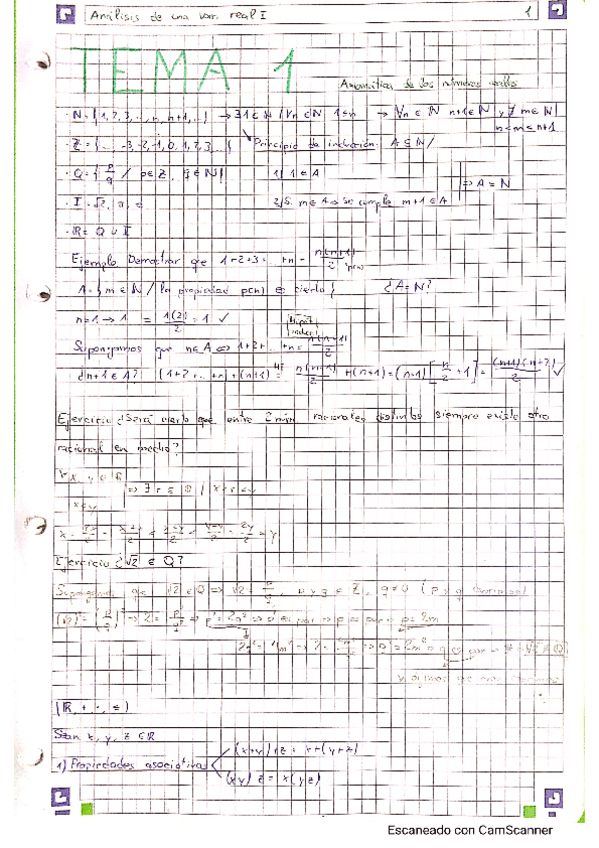 Análisis de una var. real I 1
TEMA 1
Axiomática de los números reales
· N = {1, 2, 3, ..., n, n+1, ...} → ∃ 1 ∈ N / ∀n ∈ N 1 ≤ n → ∀n ∈ N n+1 ∈ N y ∄ m ∈ N /
n < m < n+1
· Z = {... -3, -2, -1, 0, 1, 2, 3, ...} Principio de inducción: A ⊆ N /
· Q = { p/q / p ∈ Z, q ∈ N } 1) 1 ∈ A
⇒ A = N
· I = √2, π, e 2) Si m ∈ A ⇒ se cumple m+1 ∈ A
· R = Q ∪ I
Ejemplo Demostrar que 1+2+3+ ... +n = n(n+1)/2 p(n)
A = { m ∈ N / la propiedad p(n) es cierto } ¿A = N?
n=1 → 1 = 1(2)/2 = 1 ✓
Hipót. induc.
Supongamos que n ∈ A ⇔ 1+2+ ... +n = n(n+1)/2
¿n+1 ∈ A? (1+2+...+n)+(n+1) = n(n+1)/2 + (n+1) = (n+1) [n/2 + 1] = (n+1)(n+2)/2 ✓
Ejercicio ¿Será cierto que entre 2 núm racionales distintos siempre existe otro
racional en medio?
∀ x, y ∈ Q
⇒ ∃ r ∈ Q / x < r < y
x < y
x = 2x/2 = x+x/2 < x+y/2 < y+y/2 = 2y/2 = y
Ejercicio ¿√2 ∈ Q?
Supongamos que √2 ∈ Q ⇒ √2 = p/q, p y q ∈ Z, q ≠ 0 (p y q
(√2)² = (p/q)² ⇒ 2 = p²/q² ⇒ p² = 2q² ⇒ p² es par ⇒ p es par ⇒ p = 2m
(R, +, ·, ≤)
Sean x, y, z ∈ R
1) Propiedades asociativas
(x+y)+z = x+(y+z)
(xy) z = x(yz)
Escaneado con CamScanner